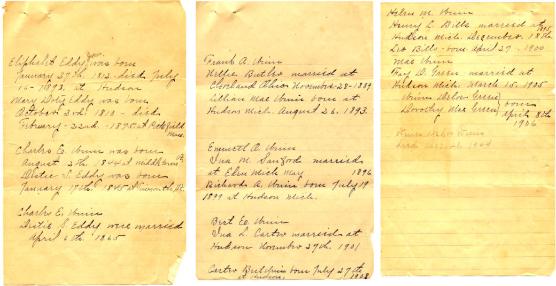 Eliphalet Eddy was born
January 27th 1813 - died July
15 - 1893. at Hudson
Mary Doty Eddy was born
October 3rd 1818 - died
February - 22nd - 1895 at
Charles E. Unim was born
August 3th 1844 at
Dettie S. Eddy was born
January 17th 1845 at
Charles E. Unim
Dettie S. Eddy were married
April 6th 1865
Frank A. Unim
Nellie Butler married at
Cleveland Ohio November - 28 - 1889
Lillian Mae Unim born at
Hudson Mich. August 26. 1893.
Emmett A. Unim
Ina M. Sanford married
at Elm Mich May 1896
Richard A. Unim born July 19
1899 at Hudson Mich.
Bert E. Unim
Ina L. Carter married at
Hudson November 27th 1901
Carter born July 27th
at Hudson 1908
Helen M. Unim
Henry L. Bills married at
Hudson Mich. December 18th
1895
Leo Bills - born April 27 - 1900
Mae Unim
Fay D. Green married at
Hudson Mich. March 15. 1905
Green
Dorothy Mae Green born
April 8th
1906